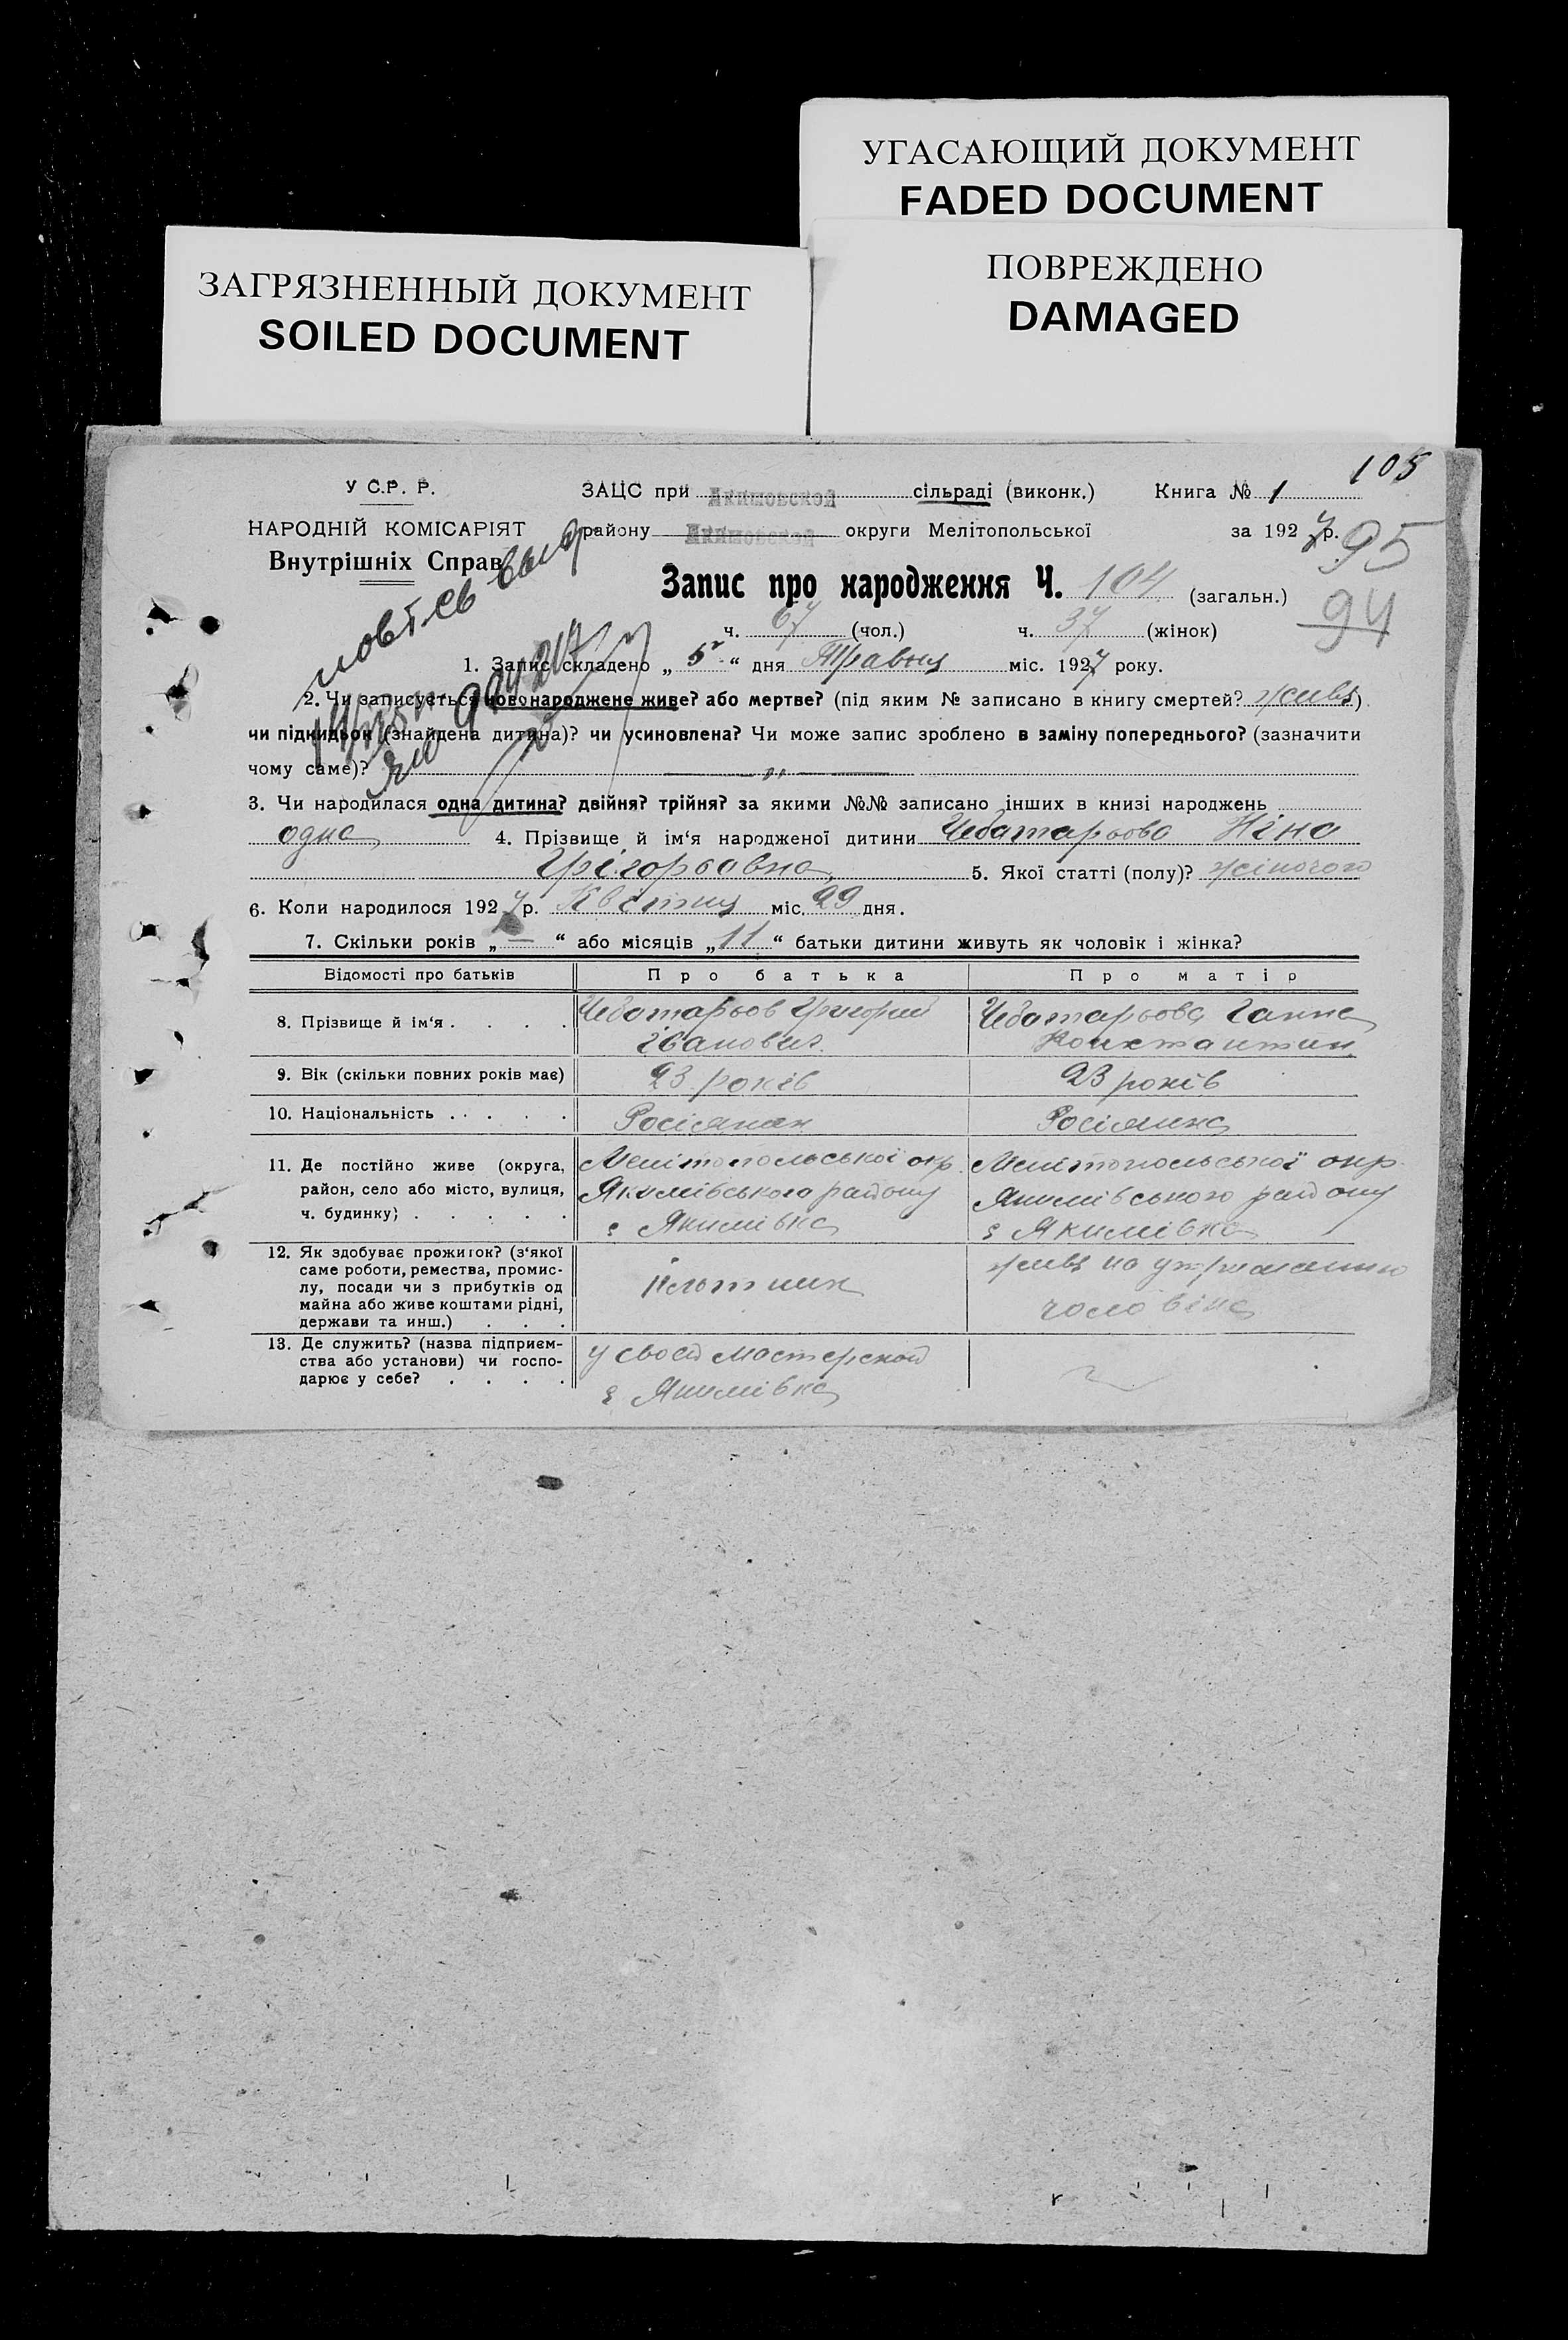 УГАСАЮЩИЙ ДОКУМЕНТ
FADED DOCUMENT
ЗАГРЯЗНЕННЫЙ ДОКУМЕНТ
SOILED DOCUMENT
ПОВРЕЖДЕНО
DAMAGED
105
У С.Р. Р. ЗАЦС при Якимовской сільраді (виконк.) Книга № 1
НАРОДНІЙ КОМІСАРІЯТ району Якимовской округи Мелітопольської за 1927 р. 95
Внутрішніх Справ
Запис про народження Ч. 104 (загальн.) 94
ч. 67 (чол.) ч. 37 (жінок)
повт. св выд
1. Запис складено „ 5 “ дня Травня міс. 1927 року.
2. Чи записується новонароджене живе? або мертве? (під яким № записано в книгу смертей? живе)
чи підкидьок (знайдена дитина)? чи усиновлена? Чи може запис зроблено в заміну попереднього? (зазначити
чому саме)? „
3. Чи народилася одна дитина? двійня? трійня? за якими №№ записано інших в книзі народжень
одна 4. Прізвище й ім‘я народженої дитини Чеботарьова Ніна
Грігорьовна 5. Якої статті (полу)? жіночого
6. Коли народилося 1927 р. Квітня міс. 29 дня.
7. Скільки років „ — “ або місяців „ 11 “ батьки дитини живуть як чоловік і жінка?
Відомості про батьків Про батька Про матір
8. Прізвище й ім‘я . . . . Чеботарьов Григорий Чеботарьова Ганна
Іванович Константин
9. Вік (скільки повних років має) 23 років 23 років
10. Національність . . . . . Росіянин Росіянка
11. Де постійно живе (округа, Мелітопольської окр. Мелітопольської окр.
район, село або місто, вулиця, Якимівського району Якимівського району
ч. будинку) . . . . . с Якимівка с Якимівка
12. Як здобуває прожиток? (з‘якої
саме роботи, ремества, промис- живе на утриманню
лу, посади чи з прибутків од Плотник
майна або живе коштами рідні, чоловіка
держави та инш.) . . .
13. Де служить? (назва підприєм- у своєй мастерской
ства або установи) чи госпо-
дарює у себе? . . . . с Якимівка